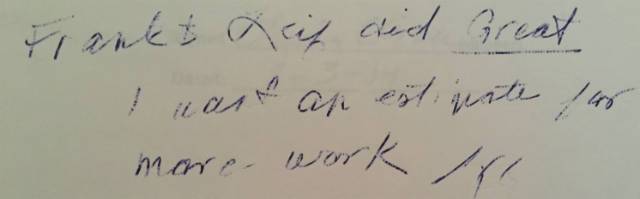 Frank & Leif did Great
I want an estimate for
more work